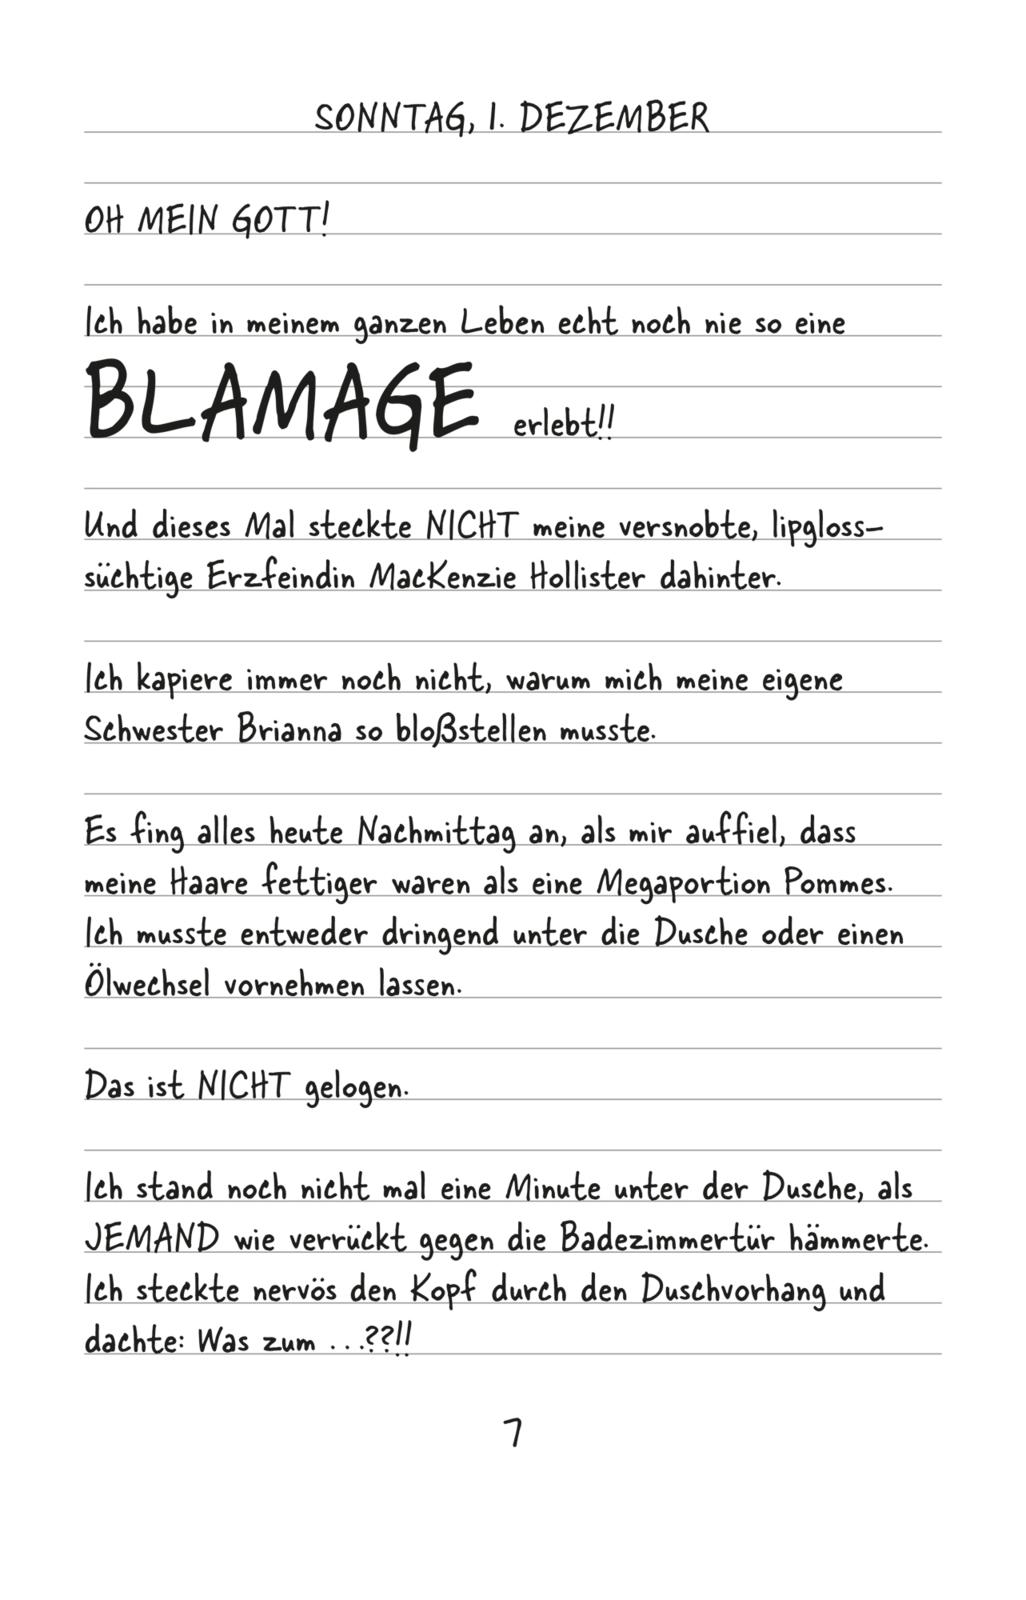 SONNTAG, 1. DEZEMBER
OH MEIN GOTT!
Ich habe in meinem ganzen Leben echt noch nie so eine
BLAMAGE erlebt!!
Und dieses Mal steckte NICHT meine versnobte, lipgloss-
süchtige Erzfeindin MacKenzie Hollister dahinter.
Ich kapiere immer noch nicht, warum mich meine eigene
Schwester Brianna so bloßstellen musste.
Es fing alles heute Nachmittag an, als mir auffiel, dass
meine Haare fettiger waren als eine Megaportion Pommes.
Ich musste entweder dringend unter die Dusche oder einen
Ölwechsel vornehmen lassen.
Das ist NICHT gelogen.
Ich stand noch nicht mal eine Minute unter der Dusche, als
JEMAND wie verrückt gegen die Badezimmertür hämmerte.
Ich steckte nervös den Kopf durch den Duschvorhang und
dachte: Was zum ...??!!
7